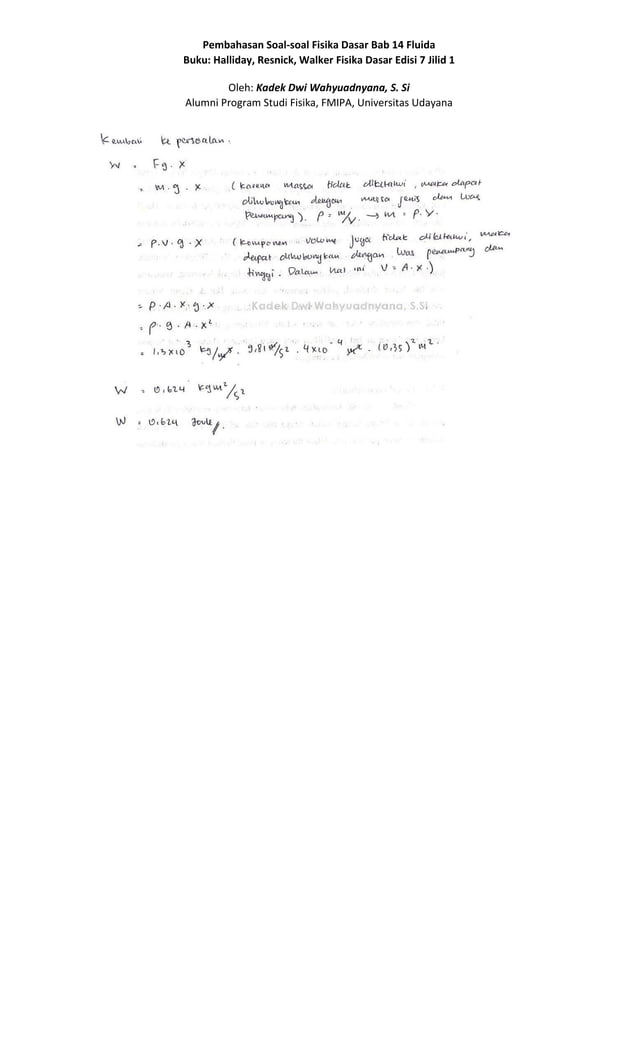 Pembahasan Soal-soal Fisika Dasar Bab 14 Fluida
Buku: Halliday, Resnick, Walker Fisika Dasar Edisi 7 Jilid 1
Oleh: Kadek Dwi Wahyuadnyana, S. Si
Alumni Program Studi Fisika, FMIPA, Universitas Udayana
Kembali ke persoalan.
W = Fg . x
= m . g . x (karena massa tidak diketahui, maka dapat
dihubungkan dengan massa jenis dan luas
Penampang). ρ = m/V. → m = ρ. V.
= ρ. V. g . x (komponen volume juga tidak diketahui, maka
dapat dihubungkan dengan luas penampang dan
tinggi. Dalam hal ini V = A . x.)
= ρ . A . x . g . x
Kadek Dwi Wahyuadnyana, S.Si
= ρ . g . A . x²
= 1,3 x 10³ kg/m³ . 9,81 m/s² . 4 x 10⁻⁴ m² . (0,35)² m²
W = 0,624 kgm²/s²
W = 0,624 Joule //.